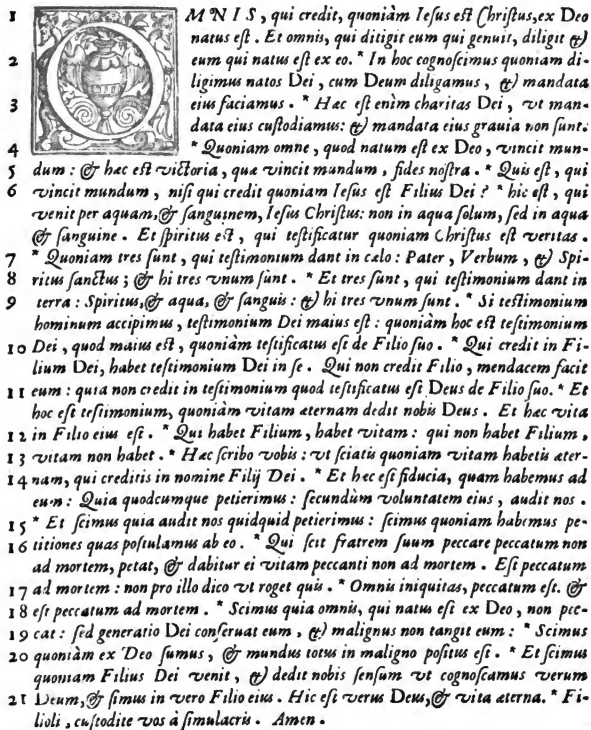 1 OMNIS, qui credit, quoniàm Iesus est Christus, ex Deo
natus est. Et omnis, qui diligit eum qui genuit, diligit &
2 eum qui natus est ex eo. * In hoc cognoscimus quoniam di-
ligimus natos Dei, cum Deum diligamus, & mandata
3 eius faciamus. * Hæc est enìm charitas Dei, vt man-
data eius custodiamus: & mandata eius grauia non sunt:
4 * Quoniam omne, quod natum est ex Deo, vincit mun-
5 dum: & hæc est victoria, quæ vincit mundum, fides nostra. * Quis est, qui
6 vincit mundum, nisi qui credit quoniam Iesus est Filius Dei? * hic est, qui
venit per aquam, & sanguinem, Iesus Christus: non in aqua solum, sed in aqua
& sanguine. Et spiritus est, qui testificatur quoniam Christus est veritas.
7 * Quoniam tres sunt, qui testimonium dant in cælo: Pater, Verbum, & Spi-
8 ritus sanctus; & hi tres vnum sunt. * Et tres sunt, qui testimonium dant in
9 terra: Spiritus, & aqua, & sanguis: & hi tres vnum sunt. * Si testimonium
hominum accipimus, testimonium Dei maius est: quoniàm hoc est testimonium
10 Dei, quod maius est, quoniàm testificatus est de Filio suo. * Qui credit in Fi-
lium Dei, habet testimonium Dei in se. Qui non credit Filio, mendacem facit
11 eum: quia non credit in testimonium quod testificatus est Deus de Filio suo. * Et
hoc est testimonium, quoniàm vitam æternam dedit nobis Deus. Et hæc vita
12 in Filio eius est. * Qui habet Filium, habet vitam: qui non habet Filium,
13 vitam non habet. * Hæc scribo vobis: vt sciatis quoniam vitam habetis æter-
14 nam, qui creditis in nomine Filij Dei. * Et hec est fiducia, quam habemus ad
eum: Quia quodcumque petierimus: secundùm voluntatem eius, audit nos.
15 * Et scimus quia audit nos quidquid petierimus: scimus quoniam habemus pe-
16 titiones quas postulamus ab eo. * Qui scit fratrem suum peccare peccatum non
ad mortem, petat, & dabitur ei vitam peccanti non ad mortem. Est peccatum
17 ad mortem: non pro illo dico vt roget quis. * Omnis iniquitas, peccatum est. &
18 est peccatum ad mortem. * Scimus quia omnis, qui natus est ex Deo, non pec-
19 cat: sed generatio Dei conseruat eum, & malignus non tangit eum: * Scimus
20 quoniàm ex Deo sumus, & mundus totus in maligno positus est. * Et scimus
quoniam Filius Dei venit, & dedit nobis sensum vt cognoscamus verum
21 Deum, & simus in vero Filio eius. Hic est verus Deus, & vita æterna. * Fi-
lioli, custodite vos à simulacris. Amen.